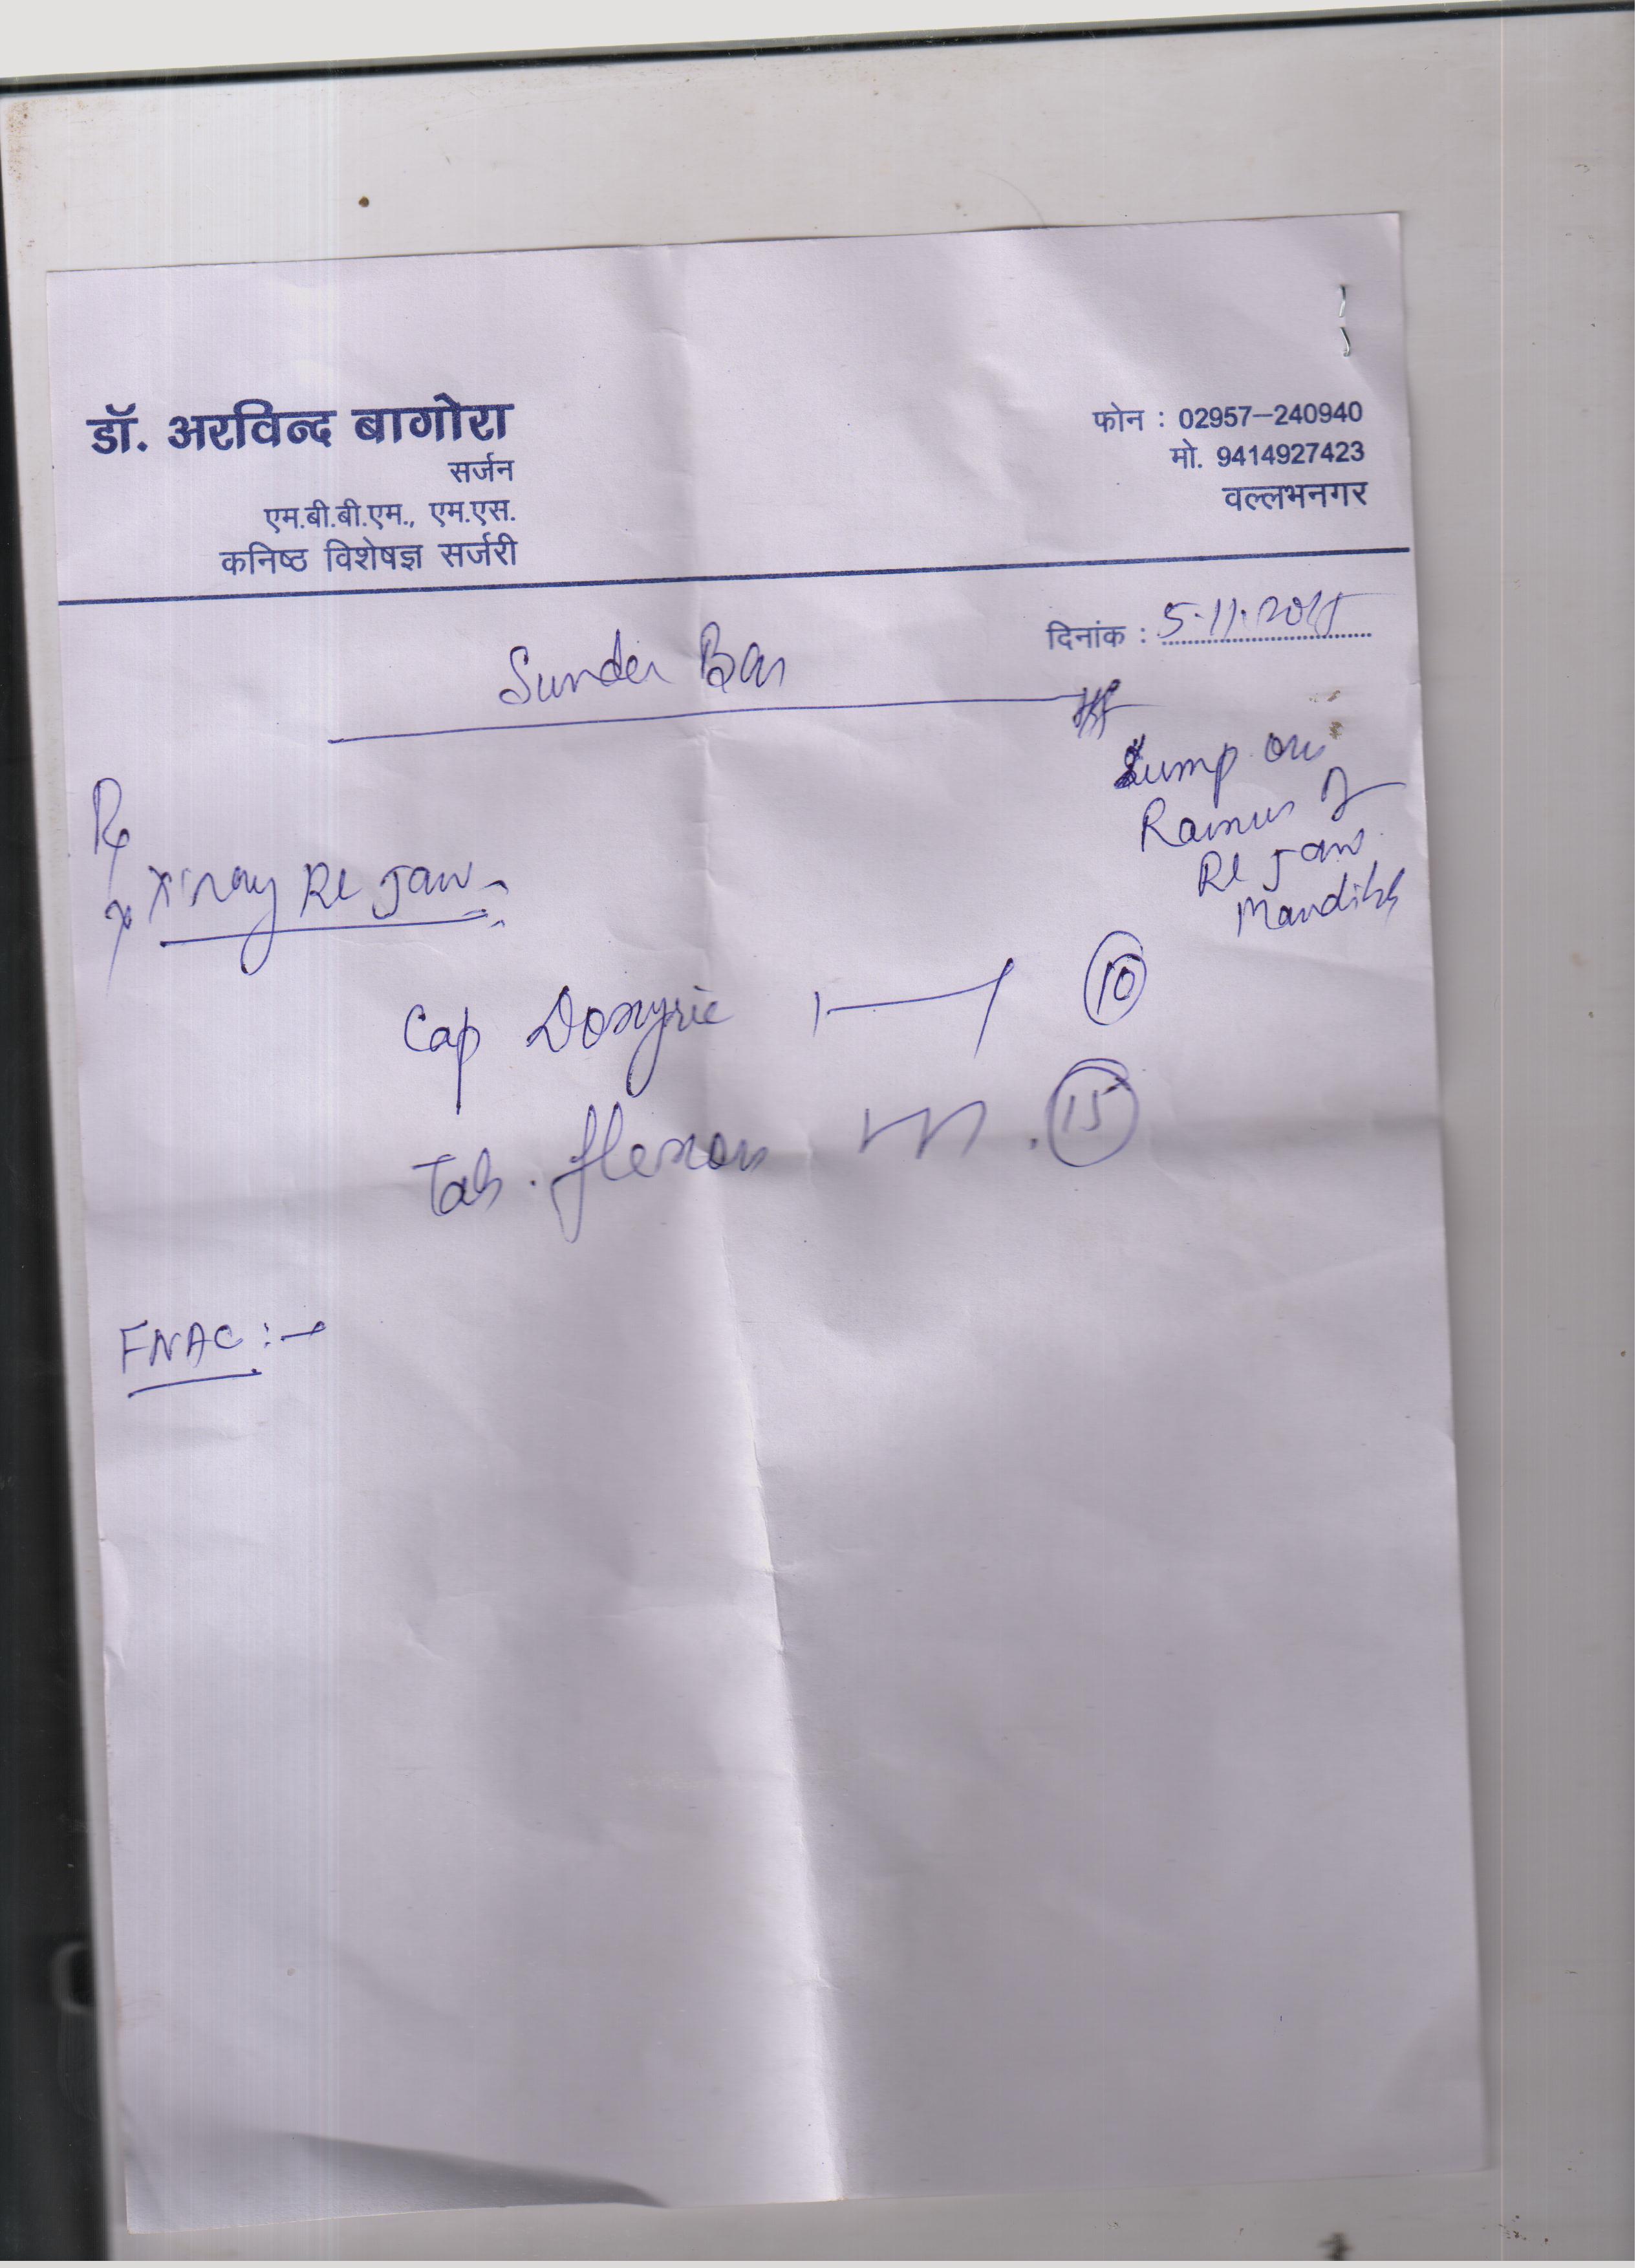 डॉ. अरविन्द बागोरा
सर्जन
एम.बी.बी.एम., एम.एस.
कनिष्ठ विशेषज्ञ सर्जरी
फोन : 02957-240940
मो. 9414927423
वल्लभनगर
दिनांक : 5.11.
Sunder Bai
Lump on
Ramus of
Rt Jaw
Rx
X'ray Rt Jaw
Cap 10
Tab. flexon 15
FNAC :-